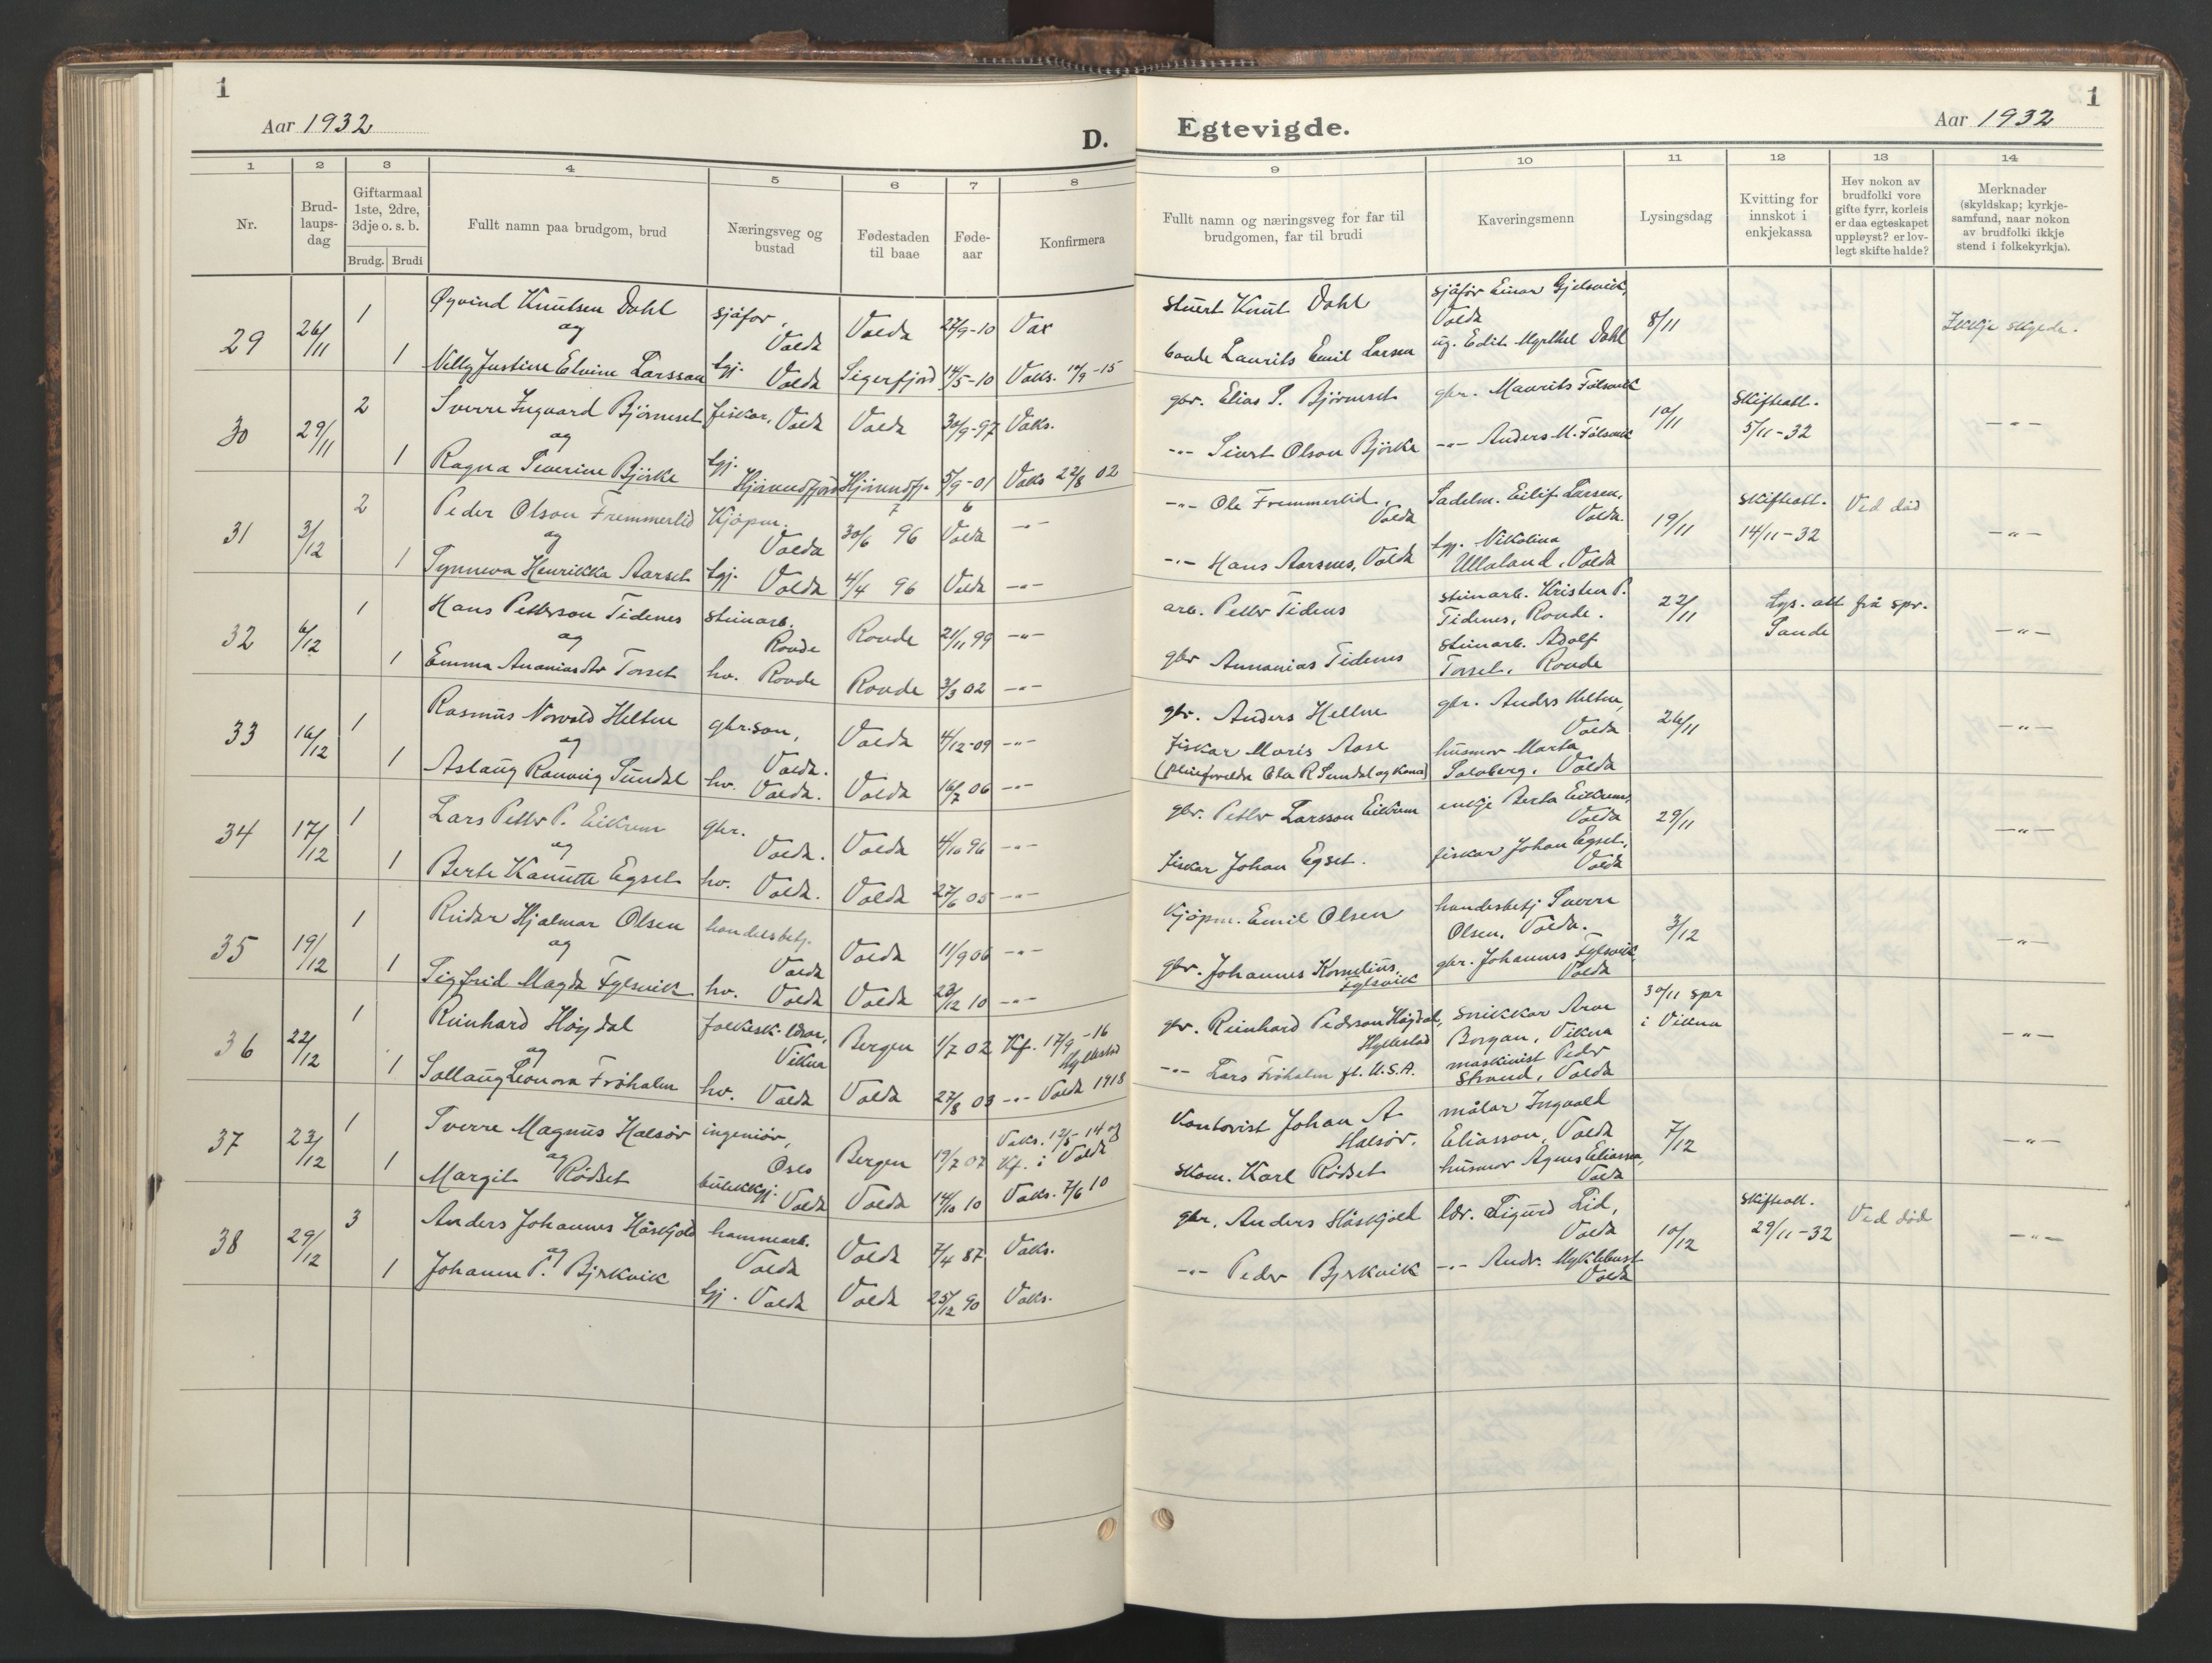 1
Aar 1932
D.
1 2 3 4 5 6 7 8
Nr.
Brud-
laups-
dag
Giftarmaal
1ste, 2dre,
3dje o. s. b.
Brudg. Brudi
Fullt namn paa brudgom, brud
Næringsveg og
bustad
Fødestaden
til baae
Føde-
aar
Konfirmera
29 26/11 1 Øyvind Knutsen Dahl sjåfør, Volda Volda 27/9-10 Vax
og
1 Nelly Justine Elvine Larsson tgj. Volda Sigerfjord 14/5-10 Vaks. 19/9-15
30 29/11 2 Sverre Ingvard Bjørneset fiskar, Volda Volda 30/9-97 Vaks.
og
1 Ragna Severine Bjørke tgj. Hjørundfjord Hjørundfj. 5/9-01 Vaks 22/8 02
31 3/12 2 Peder Olson Fremmerlid Kjøpm. Volda 30/6 96 Volda —"—
og
1 Synneva Henrikka Aarset tgj. Volda 4/4 96 Volda —"—
32 6/12 1 Hans Petterson Tidenes steinarb. Rovde Rovde 21/11 99 —"—
og
1 Emma Ananiasdtr Torset hv. Rovde Rovde 3/3 02 —"—
33 16/12 1 Rasmus Norvald Heltne gbr.son, Volda. Volda 4/12-09 —"—
og
1 Aslaug Ranveig Sundal hv. Volda. Volda 16/7 06 —"—
34 17/12 1 Lars Petter P. Eikrem gbr. Volda. Volda 4/10 96 —"—
og
1 Berte Kanutte Egset hv. Volda. Volda 27/6 05 —"—
35 19/12 1 Reidar Hjalmar Olsen handelsbetj. Volda Volda 11/9 06 —"—
og
1 Sigfrid Magda Fylsvik hv. Volda Volda 23/12 10 —"—
36 22/12 1 Reinhard Høydal folkesk. lærar, Vikna Bergen 1/7 02 Kf. 17/9-16 Hyllestad
og
1 Sollaug Leonora Frøholm hv. Volda Volda 27/8 03 —"— Volda 1918
37 23/12 1 Sverre Magnus Halsør ingeniør, Oslo Bergen 19/7 07 Vaks. 12/5-14 og Kf. i Volda
og
1 Margit Rødset butikkgj. Volda Volda 14/10 10 Vaks. 7/6 10
38 29/12 3 Anders Johannes Håskjold hammarb. Volda Volda 7/4 87 Vaks.
og
1 Johanne P. Bjrkvik tgj. Volda Volda 25/12 90 Vaks.
1
Egtevigde.
Aar 1932
9 10 11 12 13 14
Fullt namn og næringsveg for far til
brudgomen, far til brudi
Kaveringsmenn
Lysingsdag
Kvitting for
innskot i
enkjekassa
Hev nokon av
brudfolki vore
gifte fyrr, korleis
er daa egteskapet
uppløyst? er lov-
legt skifte halde?
Merknader
(skyldskap; kyrkje-
samfund, naar nokon
av brudfolki ikkje
stend i folkekyrkja).
stuert Knut Dahl sjåfør Einar Gjelsvik, Volda 8/11 Ikkje skylde.
bonde Laurits Emil Larsen ug. Edit Myrthel Dahl
gbr. Elias S. Bjørneset gbr. Maurits Følsvik 10/11 Skifteatt. 5/11-32 —"—
—"— Sivert Olson Bjørke —"— Anders M. Følsvik
—"— Ole Fremmerlid, Volda Sadelm. Eilif Larsen, Volda. 19/11 Skifteatt. 14/11-32 Ved død —"—
—"— Hans Aarsnes, Volda tgj. Nikolina Ullaland, Volda
arb. Petter Tidens steinarb. Kristen P. Tidenes, Rovde. 22/11 Lys. att frå spr. Sande —"—
gbr Annanias Tidenes steinarb. Adolf Torset, Rovde
gbr. Anders Heltne gbr. Anders Heltne, Volda 26/11 —"—
fiskar Moris Aase husmor Marta
(pleieforeldre Ola R Sundal og Kona) Solberg. Volda
gbr. Petter Larsson Eikrem enkje Berta Eikrem, Volda 29/11 —"—
fiskar Johan Egset. fiskar Johan Egset, Volda
Kjøpm. Emil Olsen handesbetj Sverre Olsen, Volda. 3/12 —"—
gbr. Johannes Kornelius Fylsvik gbr. Johannes Fylsvik Volda
gbr. Reinhard Pedersson Høydal, Hyllestad snikkar Arne Borgan, Vikna 30/11 spr i Vikna —"—
—"— Lars Frøholm fl. U.S.A. maskinist Peder Strand, Volda
Kontorist Johan A Halsør. målar Ingvald Eliasson, Volda 7/12 —"—
skom. Karl Rødset husmor Agnes Eliassen, Volda
gbr. Anders Håskjold lær. Sigurd Lid, Volda 10/12 Skifteatt. 29/11-32 Ved død —"—
—"— Peder Bjrkvik —"— Andr. Myklebust Volda